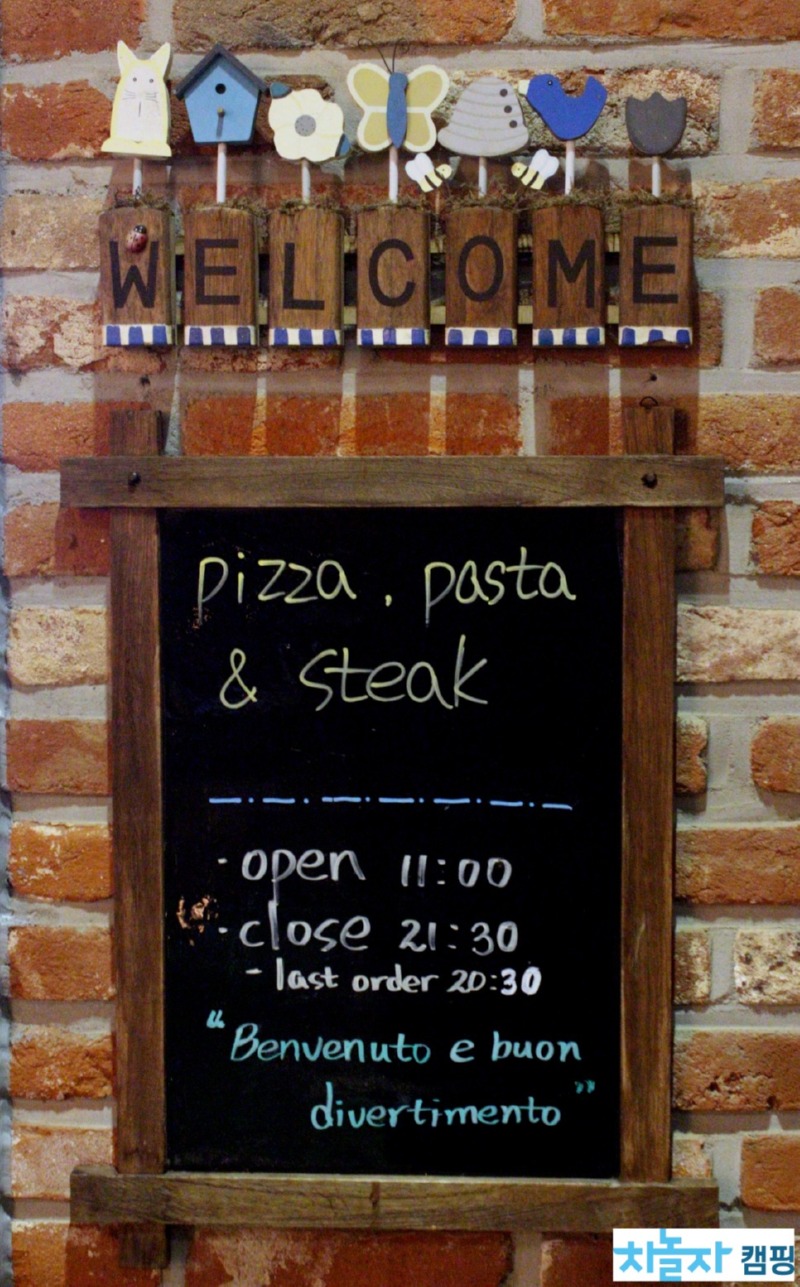 WELCOME
pizza, pasta
& steak
· open 11:00
· close 21:30
- last order 20:30
"Benvenuto e buon
divertimento"
차놀자 캠핑